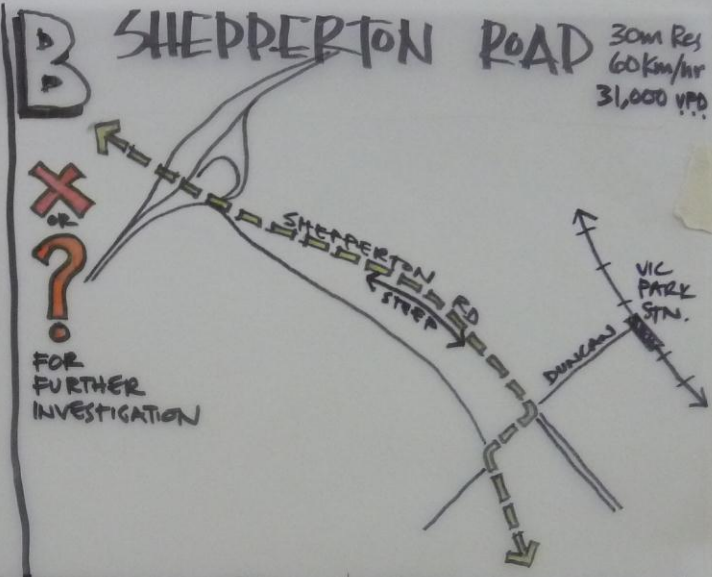 B SHEPPERTON ROAD
30m Res
60Km/hr
31,000 VPD
X
OR
?
FOR
FURTHER
INVESTIGATION
SHEPPERTON RD
STEEP
DUNCAN
VIC
PARK
STN.